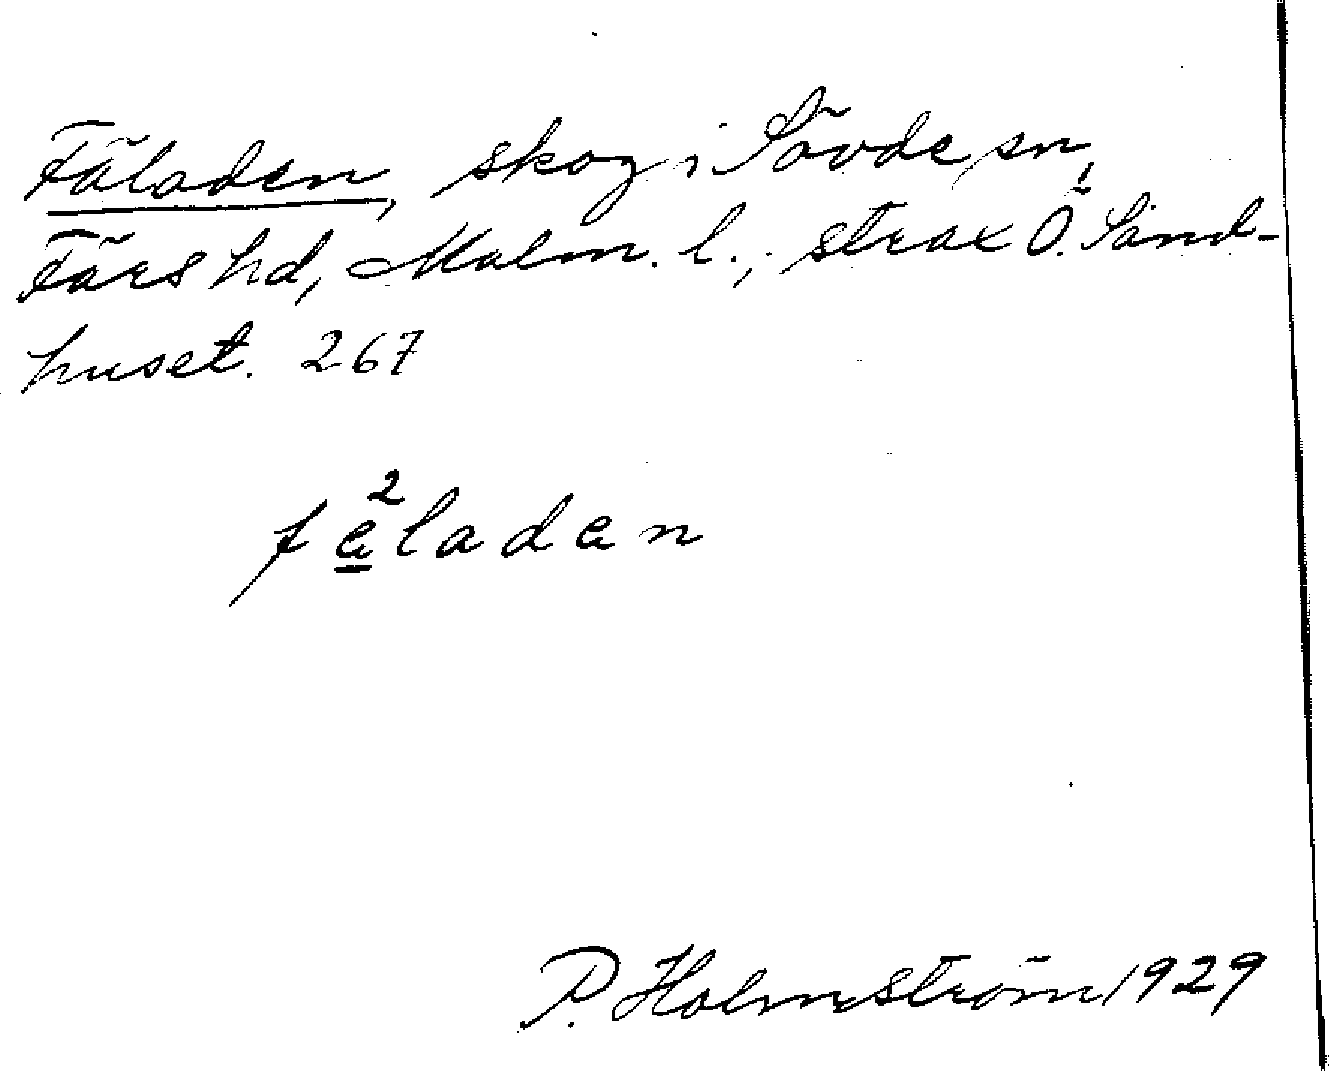 Fäladen, skog i Sövde sn,
Färs hd, Malm. l., strax Ö. Sand-
huset. 267
fä²laden
P. Holmström 1929